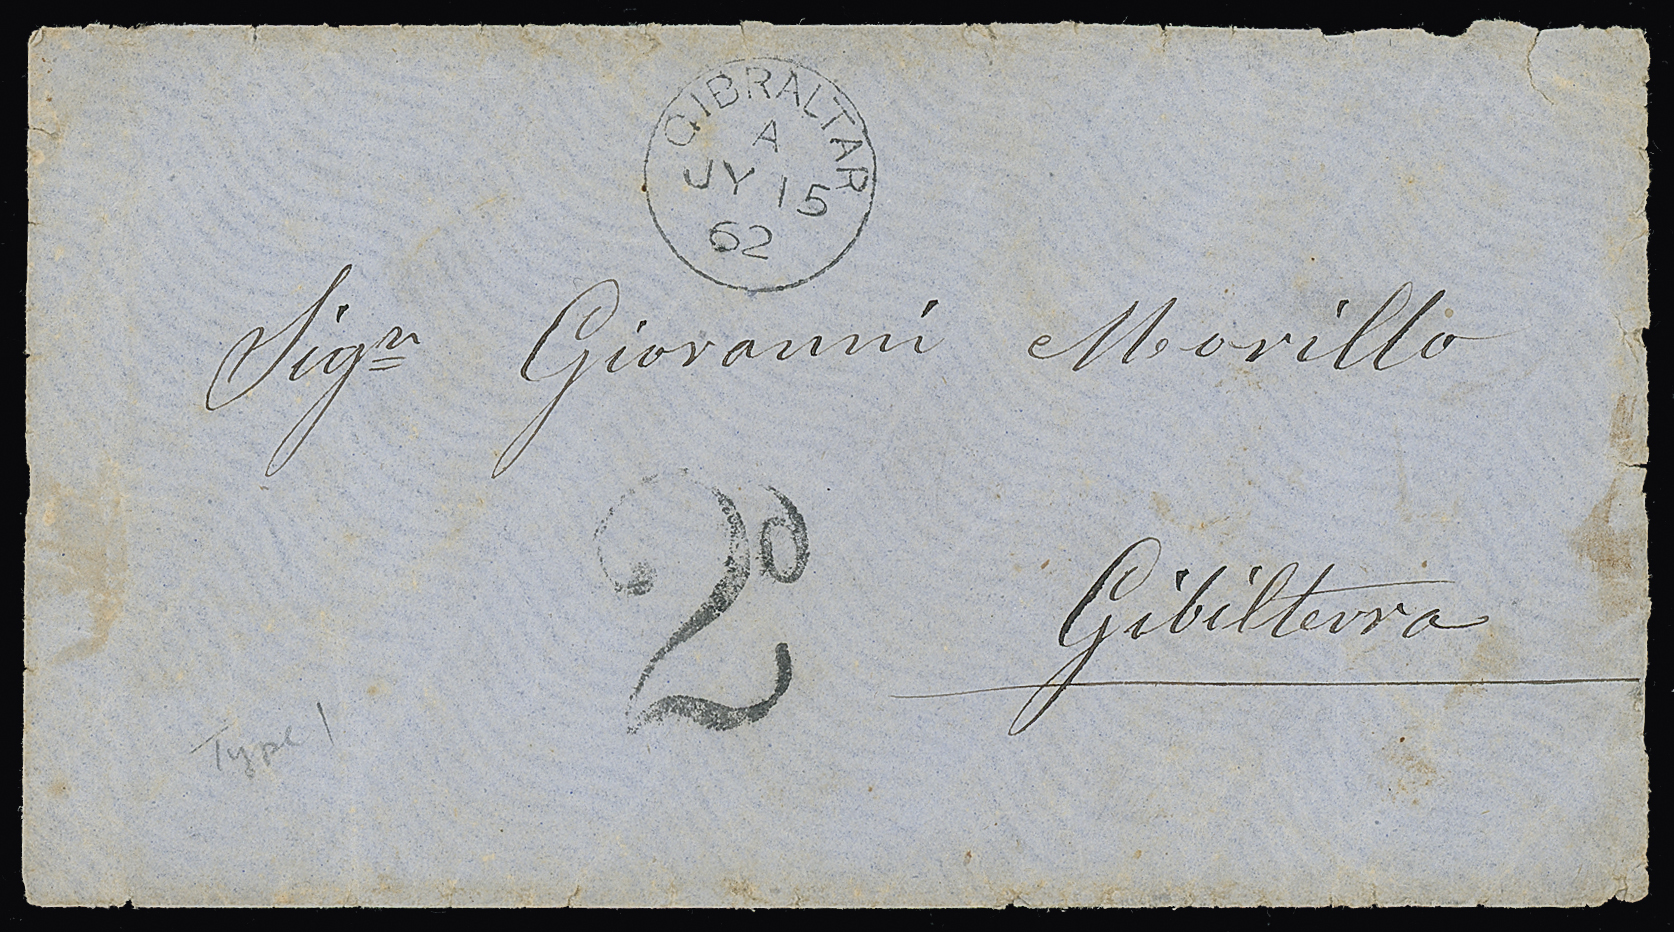 GIBRALTAR
A
JY 15
62
Sigr Giovanni Morillo
2d
Gibilterra
Type 1